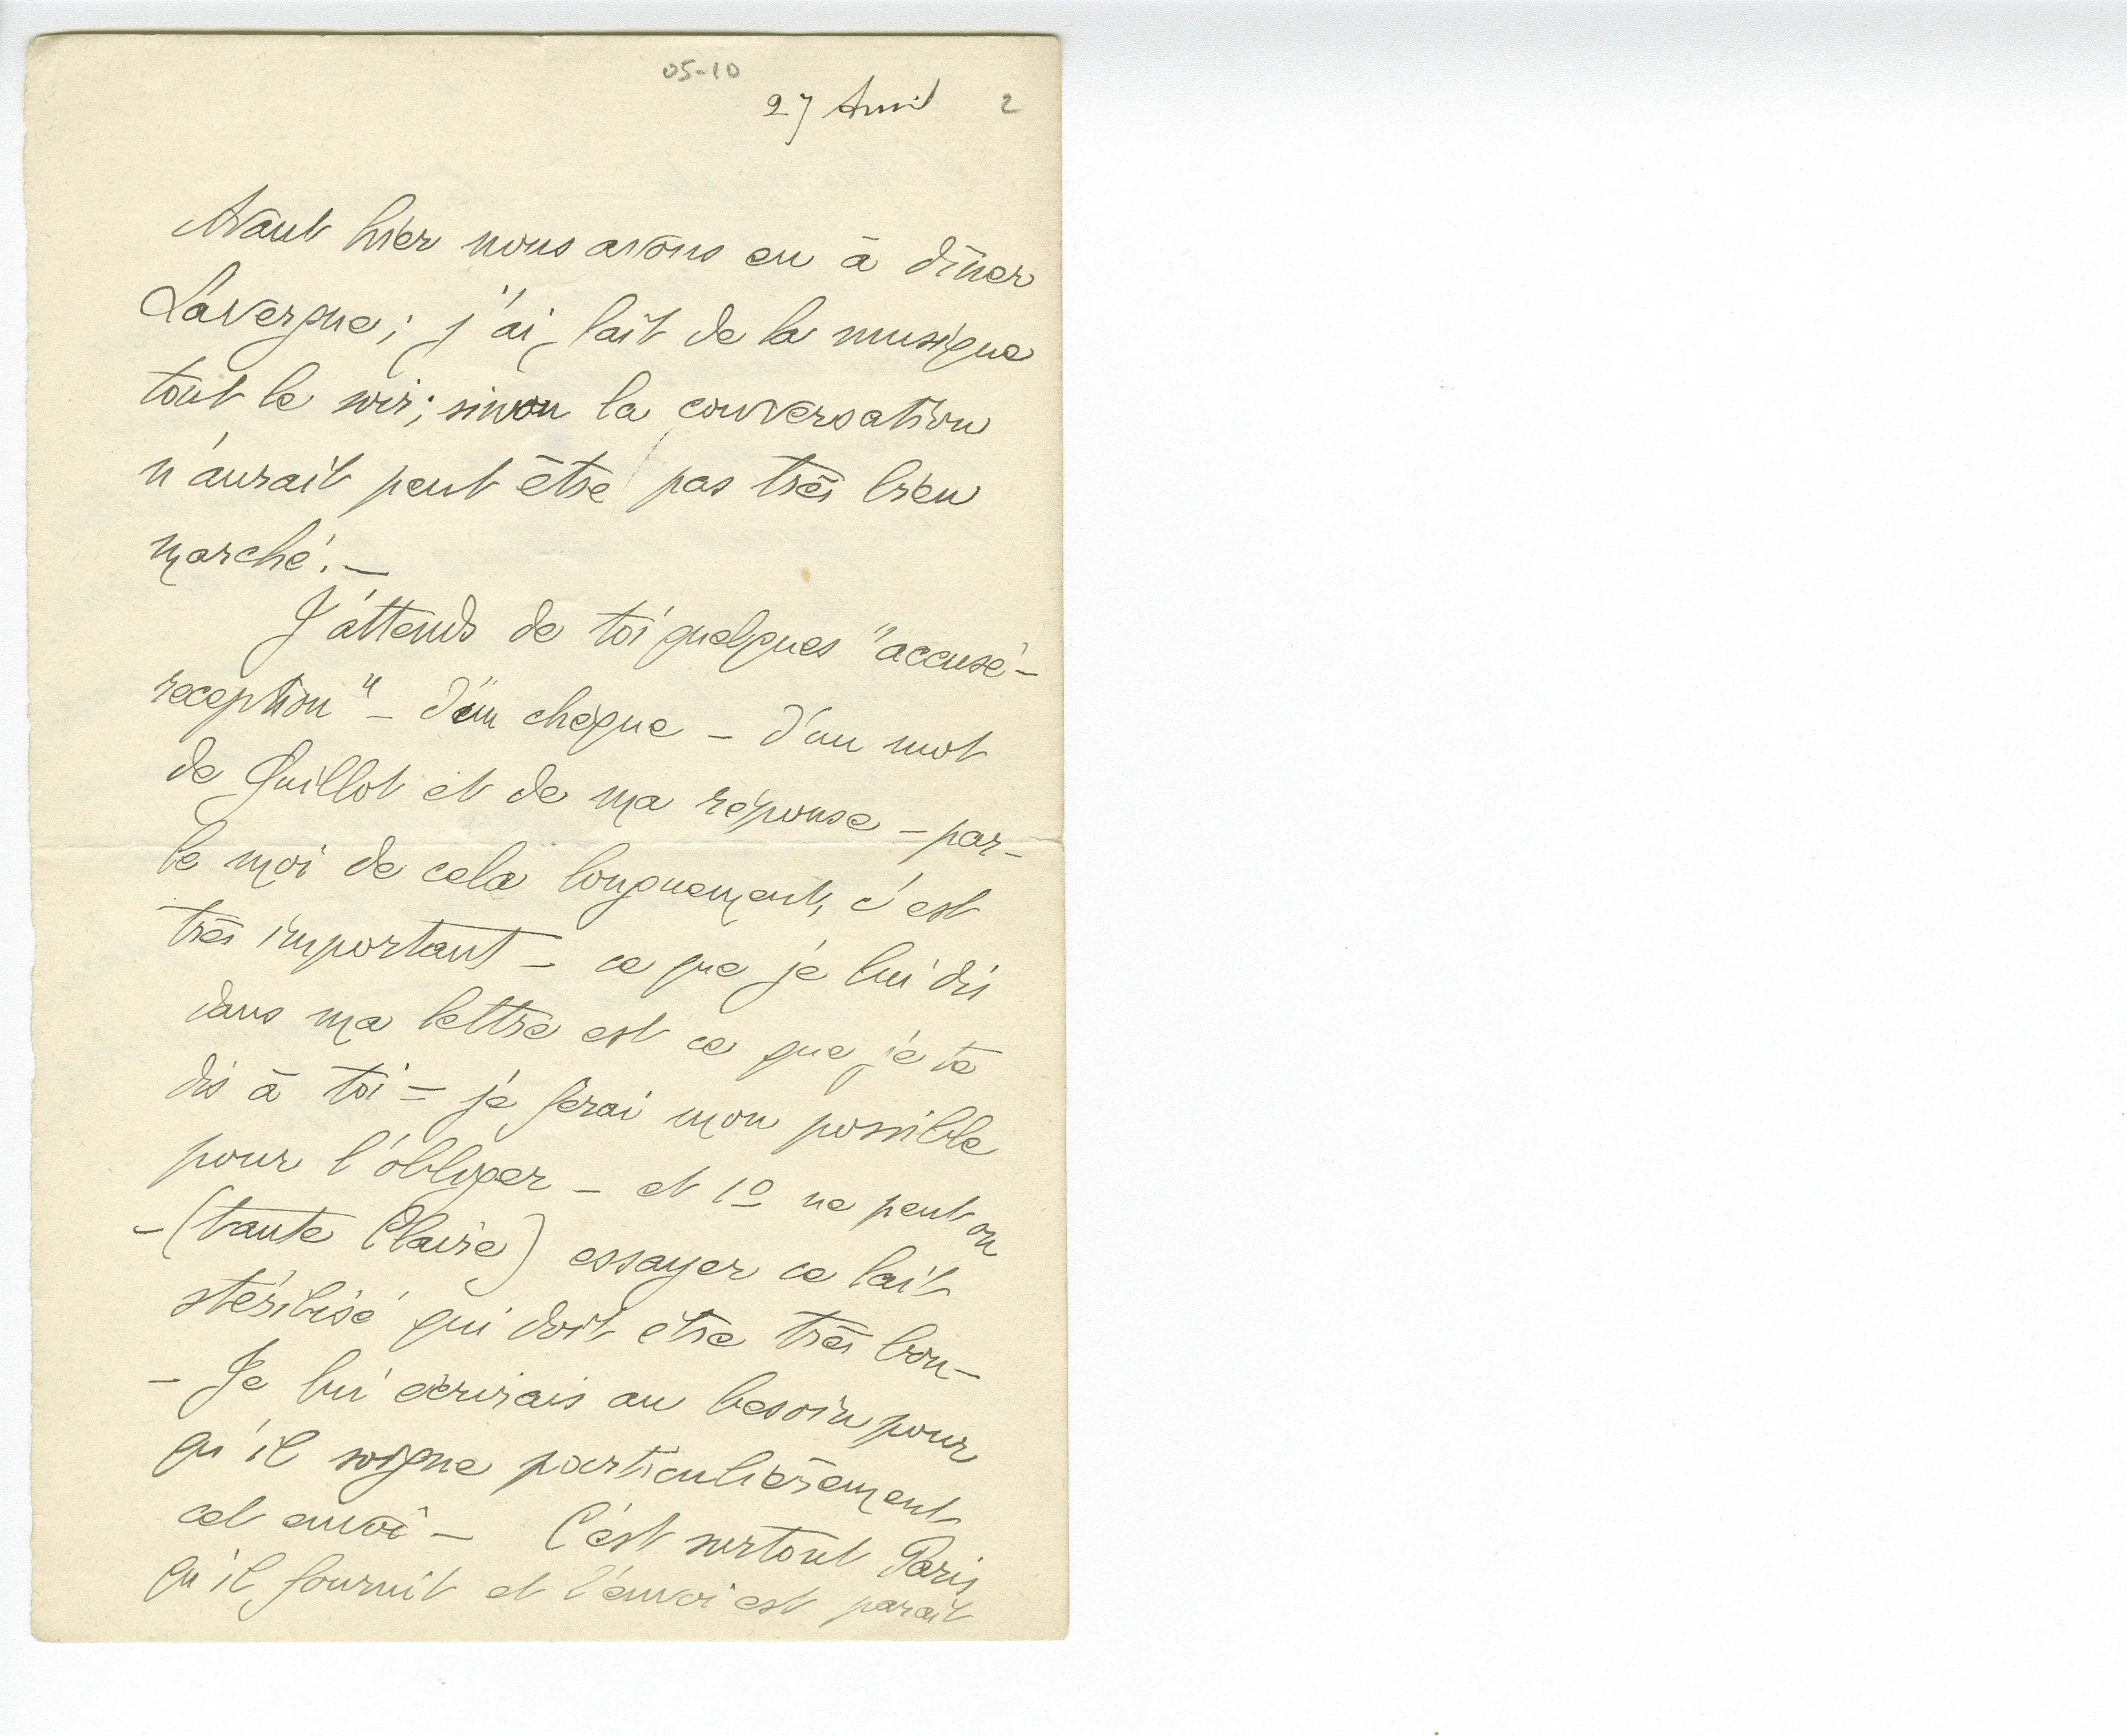 05-10
27 Avril 2
Avant hier nous avons eu à dîner
Lavergne ; j'ai fait de la musique
tout le soir ; sinon la conversation
n'aurait peut être pas très bien
marché. —
J'attends de toi quelques "accusé-
reception" — d'un chèque — d'un mot
de Guillot et de ma réponse — par-
le moi de cela longuement, c'est
très important — ce que je lui dis
dans ma lettre est ce que je te
dis à toi = je ferai mon possible
pour l'obliger — et 1º ne peut on
— (tante Claire) essayer ce lait
stérilisé qui doit être très bon —
— Je lui écrirais au besoin pour
qu'il soigne particulièrement
cet envoi — C'est surtout Paris
qu'il fournit et l'envoi est parait